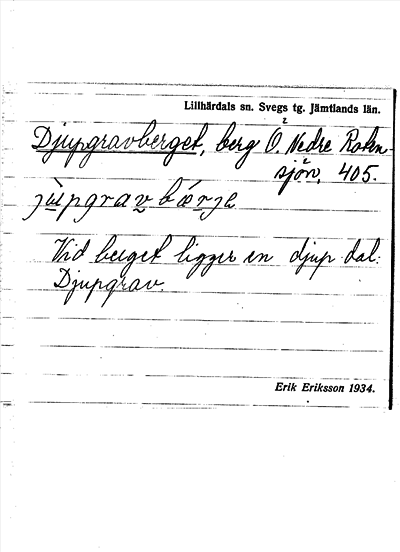 Lillhärdals sn. Svegs tg. Jämtlands län.
Djupgravberget, berg Ö. Nedre Roten-
sjön, 405.
jùpgrav bǽrje
Vid berget ligger en djup dal:
Djupgrav.
Erik Eriksson 1934.